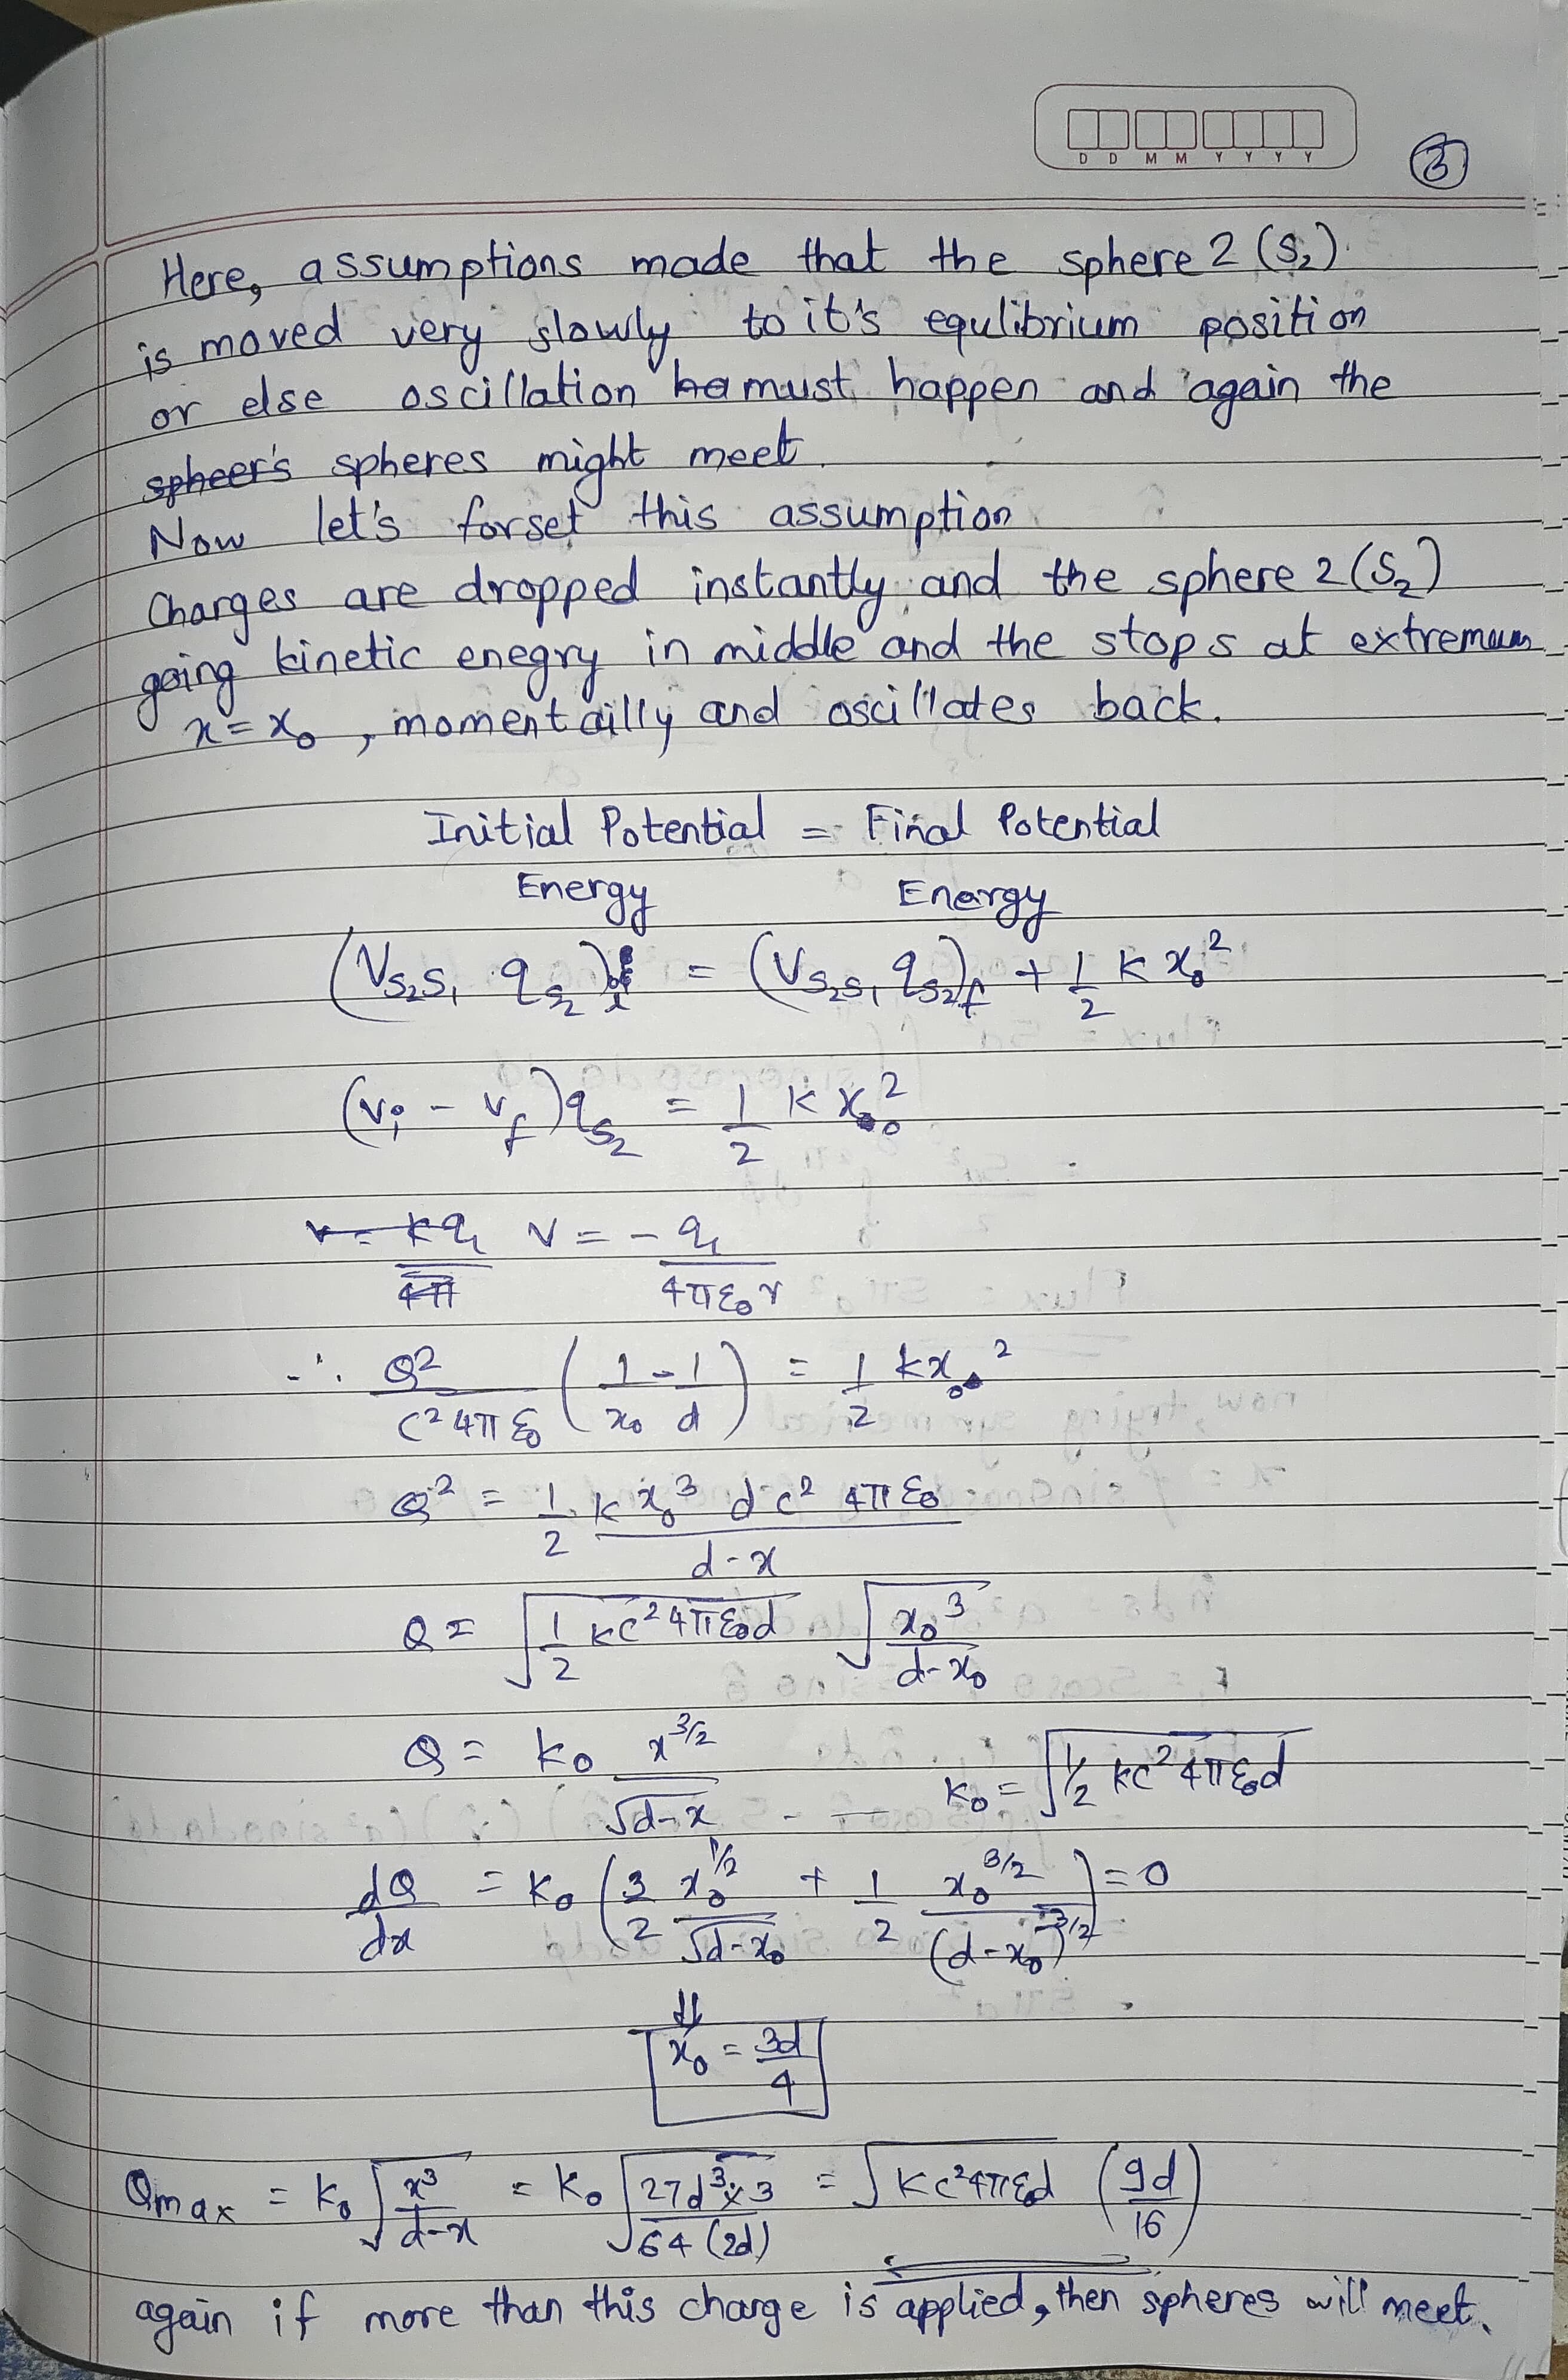 D D M M Y Y Y Y
③
Here, assumptions made that the sphere 2 (S₂)
is moved very slowly to it's equlibrium position
or else oscillation must happen and again the
spheer's spheres might meet.
Now let's forset this assumption
Charges are dropped instantly and the sphere 2 (S₂)
going kinetic enegry in middle and the stops at extremum
x = x₀ , momentailly and oscillates back.
Initial Potential = Final Potential
Energy Energy
(V_{S₂S₁} q_{S₂})_i = (V_{S₂S₁} q_{S₂})_f + 1/2 K x₀²
(V_i - V_f) q_{S₂} = 1/2 K x₀²
V = - q₁/4πε₀r
∴ Q²/(C² 4πε₀) (1/x₀ - 1/d) = 1/2 k x₀²
Q² = 1/2 k x₀³ d c² 4πε₀ / (d-x)
Q = √(1/2 k c² 4πε₀d) √(x₀³/(d-x₀))
Q = k₀ x^{3/2}/√(d-x) - — k₀ = √(1/2 k c² 4πε₀d)
dQ/dx = k₀ (3/2 x₀^{1/2}/√(d-x₀) + 1/2 x₀^{3/2}/(d-x₀)^{3/2}) = 0
⇓
x₀ = 3d/4
Qmax = k₀ √(x³/(d-x)) = k₀ √(27d³×3/64(2d)) = √(kc²4πε₀d) (9d/16)
again if more than this charge is applied, then spheres will meet.